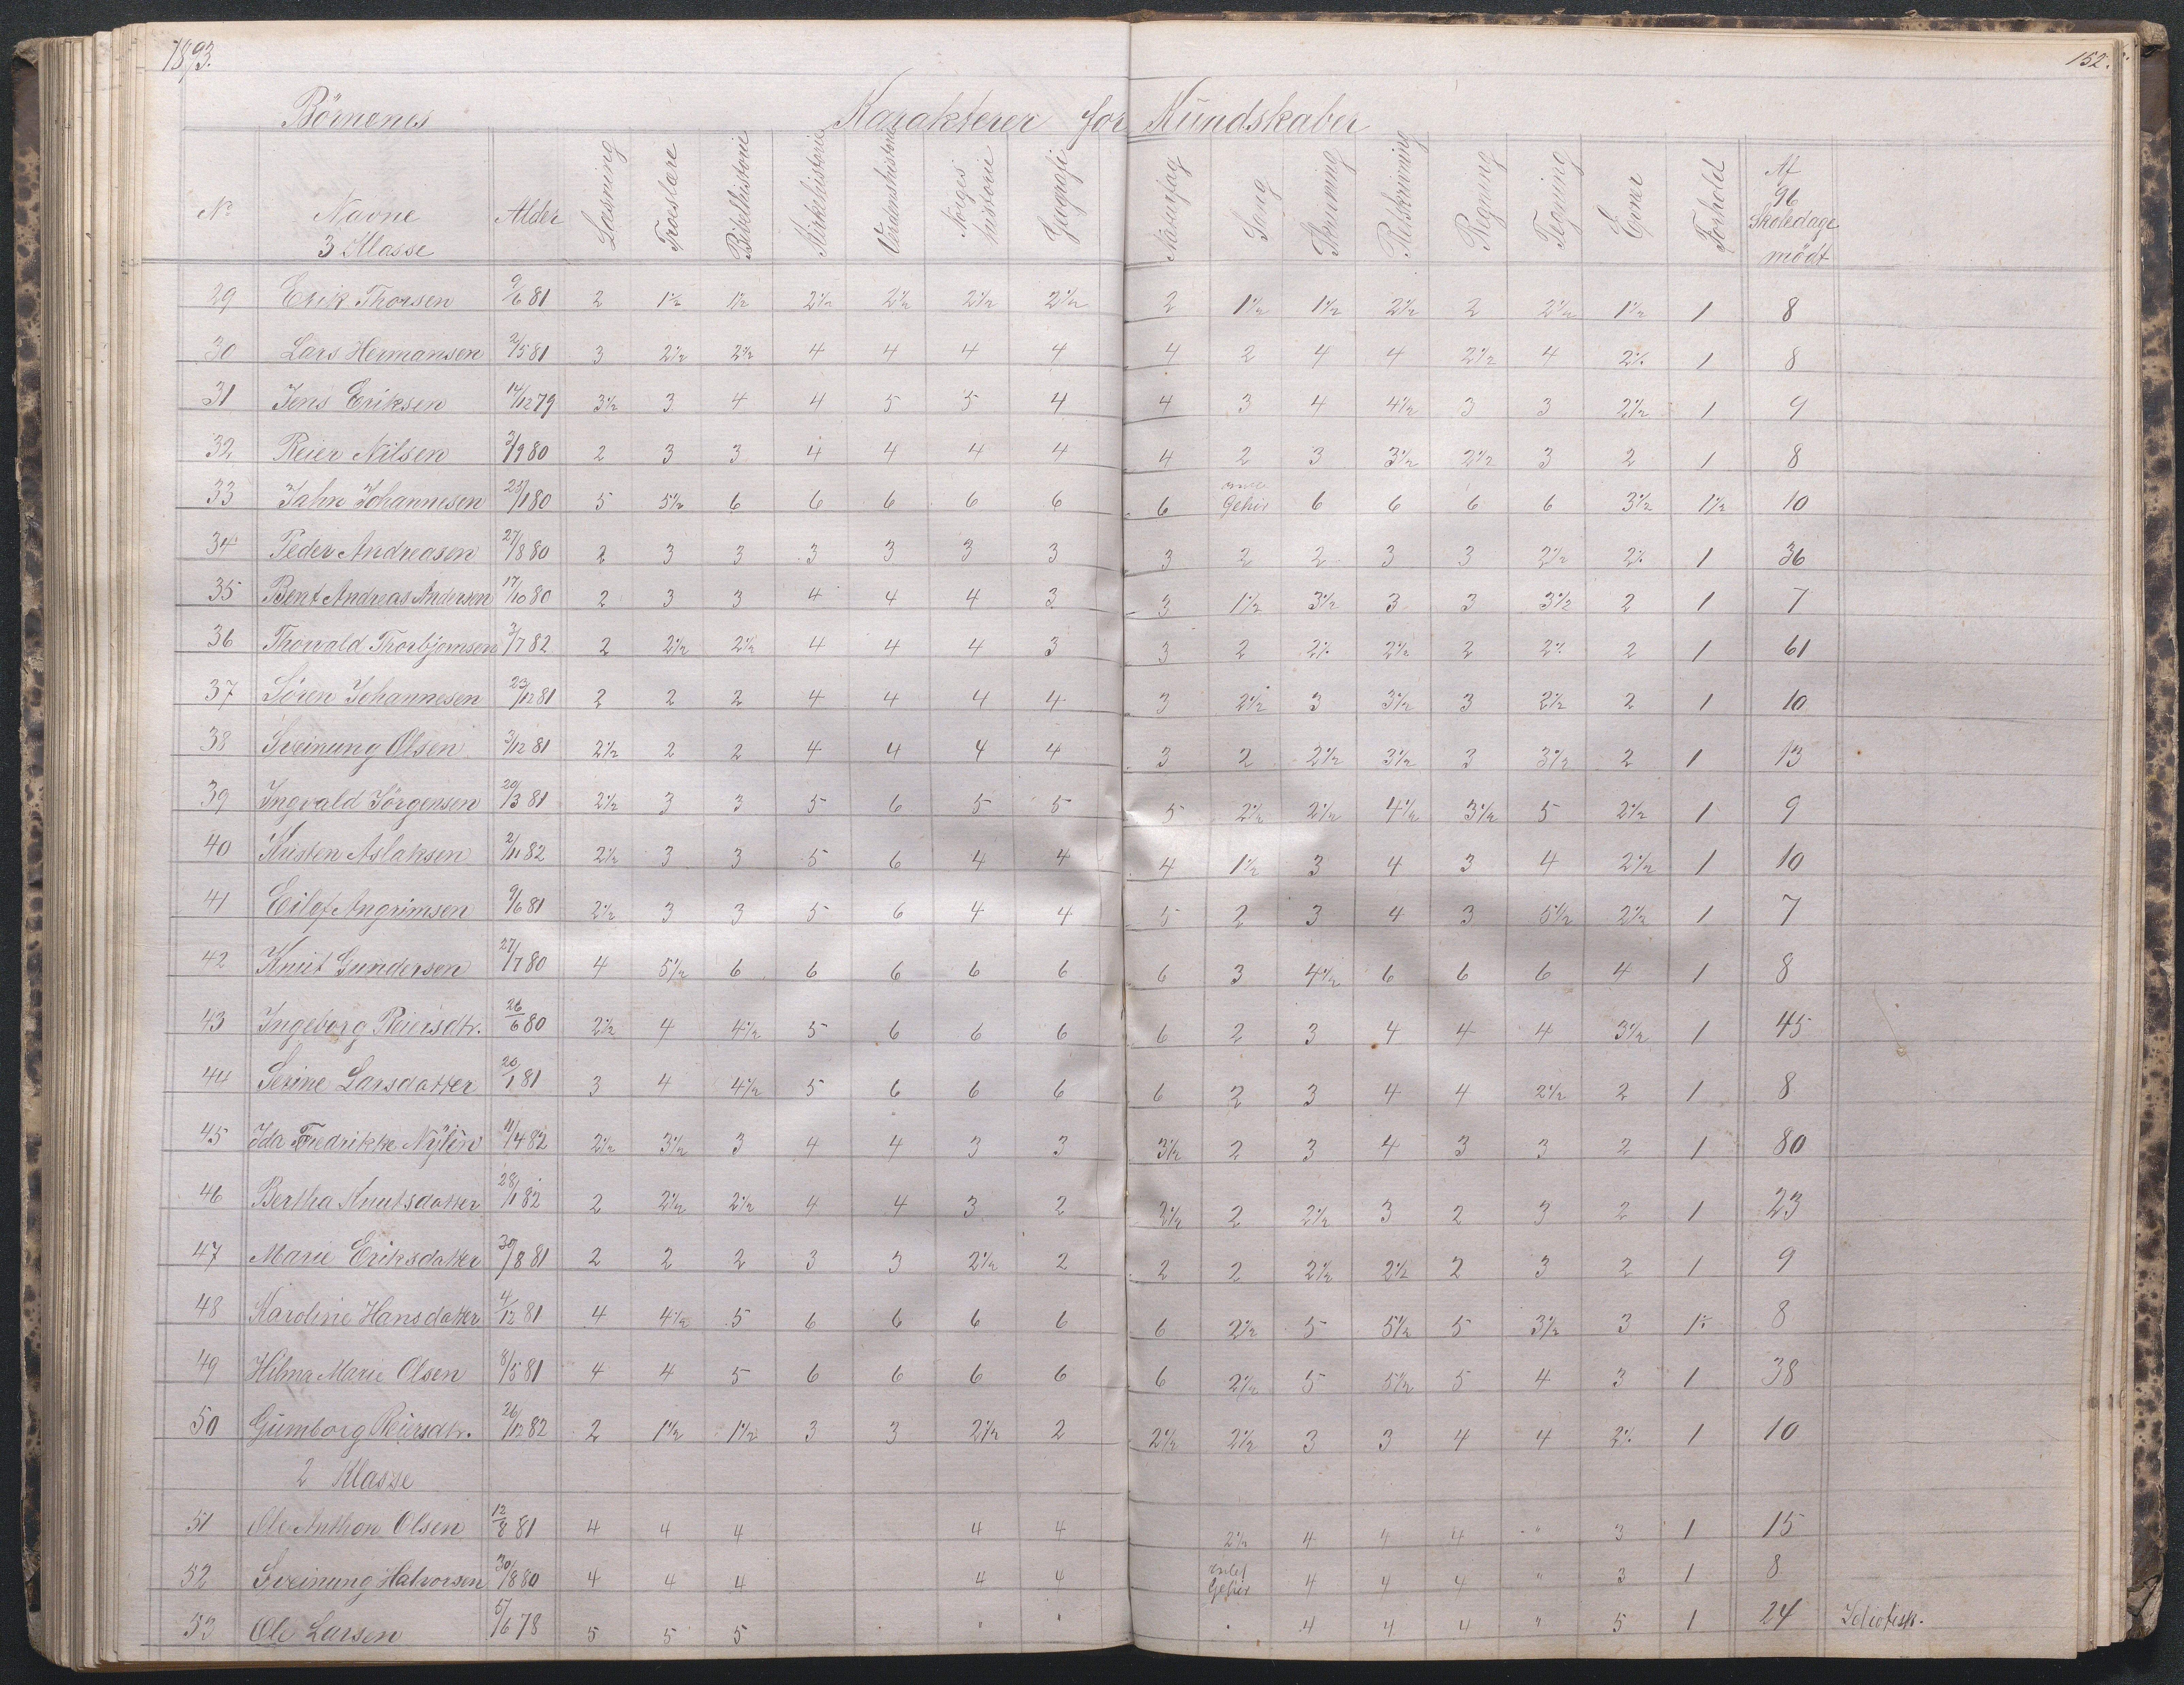 1893.
152.
Börnenes Karakterer for Kundskaber
No Navne Alder Læsning Troeslære Bibelhistorie Kirkehistorie Verdenshistorie Norges historie Geografi Naturfag Sang Skrivning Retskrivning Regning Tegning Evner Forhold Af 96 Skoledage mödt
3 Klasse
29 Erik Thorsen 9/6 81 2 1½ 1½ 2½ 2½ 2½ 2½ 2 1½ 1½ 2½ 2 2½ 1½ 1 8
30 Lars Hermansen 2/5 81 3 2½ 2½ 4 4 4 4 4 2 4 4 2½ 4 2½ 1 8
31 Jens Eriksen 14/12 79 3½ 3 4 4 5 5 4 4 3 4 4½ 3 3 2½ 1 9
32 Reier Nilsen 3/9 80 2 3 3 4 4 4 4 4 2 3 3½ 2½ 3 2 1 8
33 Jahn Johannesen 25/1 80 5 5½ 6 6 6 6 6 6 Gehör 6 6 6 6 3½ 1½ 10
34 Peder Andreasen 27/8 80 2 3 3 3 3 3 3 3 2 2 3 3 2½ 2½ 1 36
35 Bent Andreas Andersen 17/10 80 2 3 3 4 4 4 3 3 1½ 3½ 3 3 3½ 2 1 7
36 Thorvald Thorbjornsen 3/7 82 2 2½ 2½ 4 4 4 3 3 2 2½ 2½ 2 2½ 2 1 61
37 Sören Johannesen 23/12 81 2 2 2 4 4 4 4 3 2½ 3 3½ 3 2½ 2 1 10
38 Sveinung Olsen 3/12 81 2½ 2 2 4 4 4 4 3 2 2½ 3½ 3 3½ 2 1 13
39 Ingvald Jörgensen 20/3 81 2½ 3 3 5 6 5 5 5 2½ 2½ 4½ 3½ 5 2½ 1 9
40 Kristen Aslaksen 2/11 82 2½ 3 3 5 6 4 4 4 1½ 3 4 3 4 2½ 1 10
41 Eilef Angrimsen 9/6 81 2½ 3 3 5 6 4 4 5 2 3 4 3 5½ 2½ 1 7
42 Knut Gundersen 27/7 80 4 5½ 6 6 6 6 6 6 3 4½ 6 6 6 4 1 8
43 Ingeborg Reiersdtr. 26/6 80 2½ 4 4½ 5 6 6 6 6 2 3 4 4 4 3½ 1 45
44 Serine Larsdatter 20/1 81 3 4 4½ 5 6 6 6 6 2 3 4 4 2½ 2 1 8
45 Ida Fredrikke Nylin 11/4 82 2½ 3½ 3 4 4 3 3 3½ 2 3 4 3 3 2 1 80
46 Bertha Knutsdatter 28/1 82 2 2½ 2½ 4 4 3 2 3½ 2 2½ 3 2 3 2 1 23
47 Marie Eriksdatter 30/8 81 2 2 2 3 3 2½ 2 2 2 2½ 2½ 2 3 2 1 9
48 Karoline Hansdatter 4/12 81 4 4½ 5 6 6 6 6 6 2½ 5 5½ 5 3½ 3 1½ 8
49 Hilma Marie Olsen 8/5 81 4 4 5 6 6 6 6 6 2½ 5 5½ 5 4 3 1 38
50 Gumborg Reiersdtr. 26/12 82 2 1½ 1½ 3 3 2½ 2 2½ 2½ 3 3 4 4 2½ 1 10
2 Klasse
51 Ole Anthon Olsen 12/8 81 4 4 4 4 4 2½ 4 4 4 " 3 1 15
52 Sveinung Halvorsen 30/8 80 4 4 4 4 4 intet Gehör 4 4 4 " 3 1 8
53 Ole Larsen 5/6 78 5 5 5 " " 4 4 4 " 5 1 24 Idiotisk.